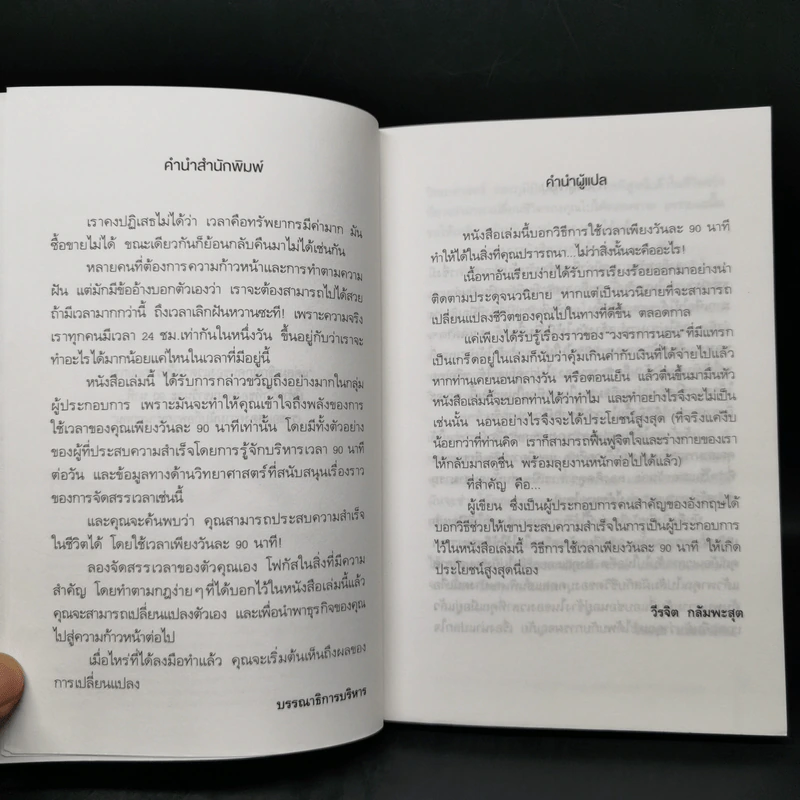 คำนำสำนักพิมพ์
เราคงปฏิเสธไม่ได้ว่า เวลาคือทรัพยากรมีค่ามาก มัน
ซื้อขายไม่ได้ ขณะเดียวกันก็ย้อนกลับคืนมาไม่ได้เช่นกัน
หลายคนที่ต้องการความก้าวหน้าและการทำตามความ
ฝัน แต่มักมีข้ออ้างบอกตัวเองว่า เราจะต้องสามารถไปได้สวย
ถ้ามีเวลามากกว่านี้ ถึงเวลาเลิกฝันหวานซะที! เพราะความจริง
เราทุกคนมีเวลา 24 ชม.เท่ากันในหนึ่งวัน ขึ้นอยู่กับว่าเราจะ
ทำอะไรได้มากน้อยแค่ไหนในเวลาที่มีอยู่นี้
หนังสือเล่มนี้ ได้รับการกล่าวขวัญถึงอย่างมากในกลุ่ม
ผู้ประกอบการ เพราะมันจะทำให้คุณเข้าใจถึงพลังของการ
ใช้เวลาของคุณเพียงวันละ 90 นาทีเท่านั้น โดยมีทั้งตัวอย่าง
ของผู้ที่ประสบความสำเร็จโดยการรู้จักบริหารเวลา 90 นาที
ต่อวัน และข้อมูลทางด้านวิทยาศาสตร์ที่สนับสนุนเรื่องราว
ของการจัดสรรเวลาเช่นนี้
และคุณจะค้นพบว่า คุณสามารถประสบความสำเร็จ
ในชีวิตได้ โดยใช้เวลาเพียงวันละ 90 นาที!
ลองจัดสรรเวลาของตัวคุณเอง โฟกัสในสิ่งที่มีความ
สำคัญ โดยทำตามกฎง่ายๆ ที่ได้บอกไว้ในหนังสือเล่มนี้แล้ว
คุณจะสามารถเปลี่ยนแปลงตัวเอง และเพื่อนำพาธุรกิจของคุณ
ไปสู่ความก้าวหน้าต่อไป
เมื่อไหร่ที่ได้ลงมือทำแล้ว คุณจะเริ่มต้นเห็นถึงผลของ
การเปลี่ยนแปลง
บรรณาธิการบริหาร
คำนำผู้แปล
หนังสือเล่มนี้บอกวิธีการใช้เวลาเพียงวันละ 90 นาที
ทำให้ได้ในสิ่งที่คุณปรารถนา...ไม่ว่าสิ่งนั้นจะคืออะไร!
เนื้อหาอันเรียบง่ายได้รับการเรียงร้อยออกมาอย่างน่า
ติดตามประดุจนวนิยาย หากแต่เป็นนวนิยายที่จะสามารถ
เปลี่ยนแปลงชีวิตของคุณไปในทางที่ดีขึ้น ตลอดกาล
แค่เพียงได้รับรู้เรื่องราวของ "วงจรการนอน" ที่มีแทรก
เป็นเกร็ดอยู่ในเล่มก็นับว่าคุ้มเกินค่ากับเงินที่ได้จ่ายไปแล้ว
หากท่านเคยนอนกลางวัน หรือตอนเย็น แล้วตื่นขึ้นมามึนหัว
หนังสือเล่มนี้จะบอกท่านได้ว่าทำไม และทำอย่างไรจึงจะไม่เป็น
เช่นนั้น นอนอย่างไรจึงจะได้ประโยชน์สูงสุด (ที่จริงแค่งีบ
น้อยกว่าที่ท่านคิด เราก็สามารถฟื้นฟูจิตใจและร่างกายของเรา
ให้กลับมาสดชื่น พร้อมลุยงานหนักต่อไปได้แล้ว)
ที่สำคัญ คือ...
ผู้เขียน ซึ่งเป็นผู้ประกอบการคนสำคัญของอังกฤษได้
บอกวิธีช่วยให้เขาประสบความสำเร็จในการเป็นผู้ประกอบการ
ไว้ในหนังสือเล่มนี้ วิธีการใช้เวลาเพียงวันละ 90 นาที ให้เกิด
ประโยชน์สูงสุดนี่เอง
วีรจิต กลัมพะสุต